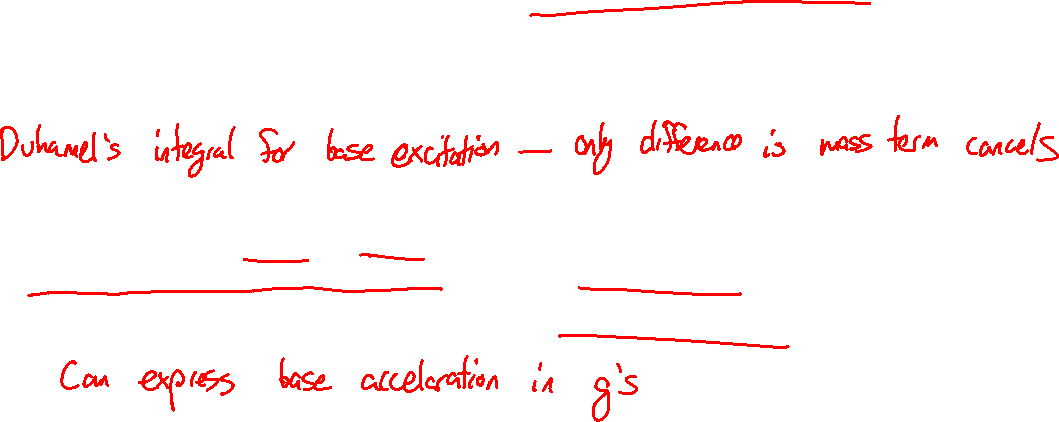 Duhamel's integral for base excitation — only difference is mass term cancels
Can express base acceleration in g's